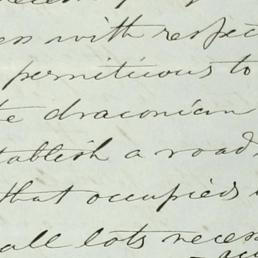 ess with respect
permiticous to
te draconian
tablish a road
that occupieds
all lots necess